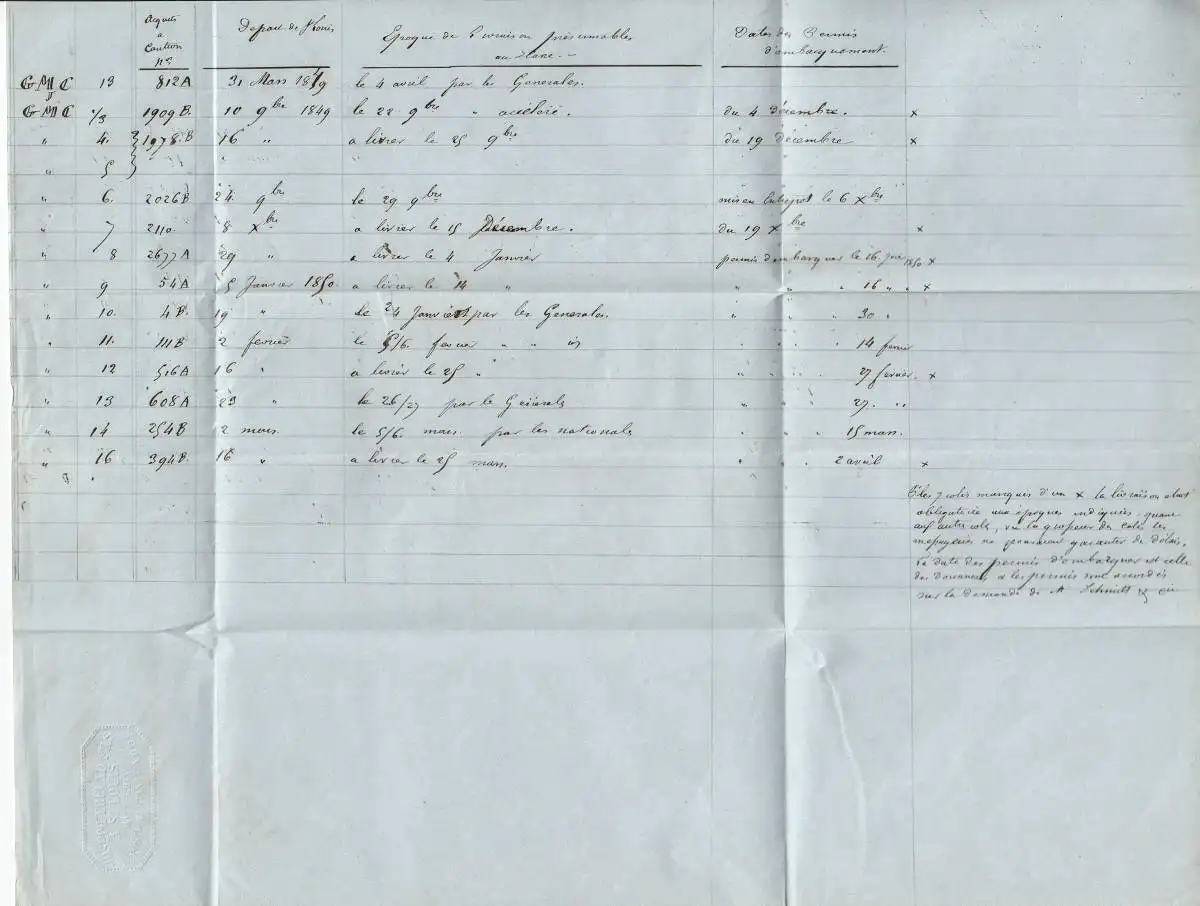 Acquits à Caution nos
Départ de
Epoque de présumables au
Dates des Permis d'embarquement.
GMC 13 812A 31 Mars 1849 le 4 avril par les Generales.
GMC 1/3 1909B. 10 9bre 1849 le 22 9bre " accéléré. du 4 Décembre. x
" 4. } 1978B 16 " a livrer le 25 9bre du 19 décembre x
" 5 } " "
" 6. 2026B 24. 9bre le 29 9bre mis en Entrepot le 6 xbre
" 7 2110. 8 xbre a livrer le 15 Décembre. du 19 xbre x
" 8 2677A 29 " a livrer le 4 Janvier permis d'embarquer le 16. 1850 x
" 9 54A 5 Janvier 1850. a livrer le 14 " " " " 16 " " x
" 10. 4B. 19 " le 24 Janvier par les Generales. " " " 30 "
" 11. 111B 2 fevrier le 5/6. fevrier " " " " " 14 fevrier
" 12 516A 16 " a livrer le 25 " " " " 27 fevrier. x
" 13 608A 23 " le 26/27 par les Générales " " " 27. "
" 14 254B 2 mars. le 5/6. mars. par les nationales " " " 15 mars.
" 16 394B. 16 " a livrer le 25 mars. " " " 2 avril x
les colis marqués d'un x la livraison etant
obligatoire aux époques indiquées. quant
aux autres colis, vu la grosseur des colis les
messageries ne pouvaient garantir de délais.
La date des permis d'embarquer est celle
des Douanes, & les permis sont accordés
sur la demande de M Schmitt & cie